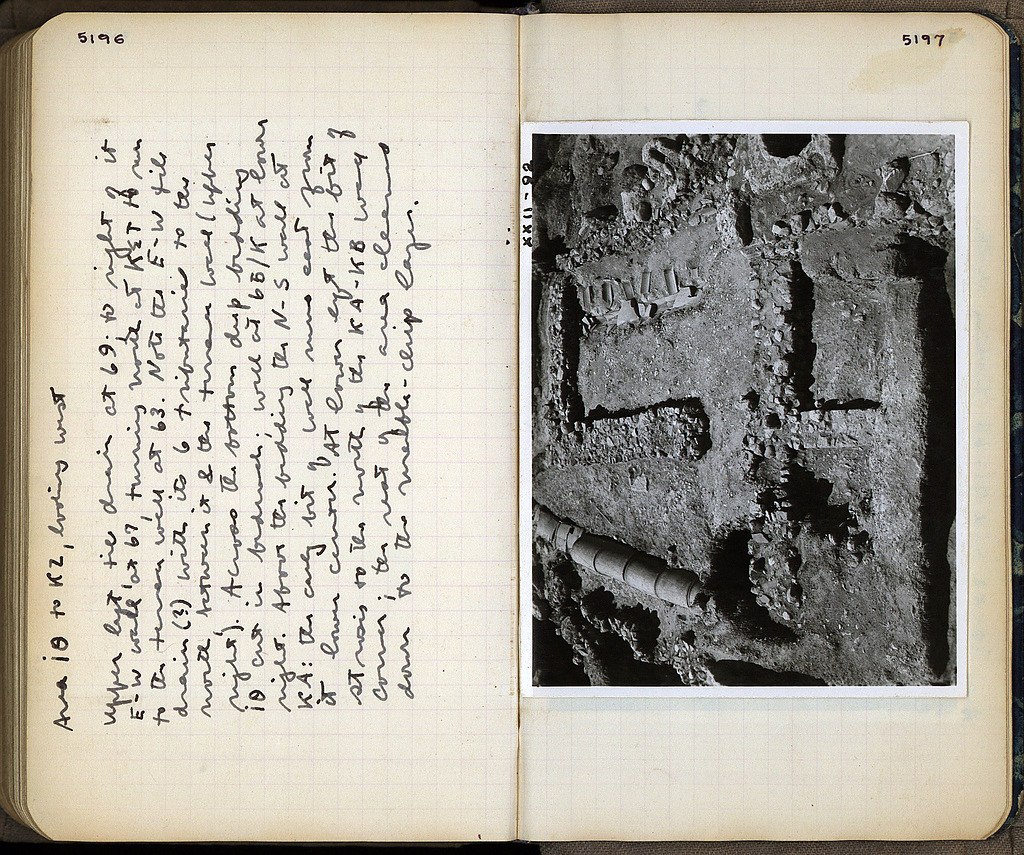 5196
Area ΙΘ to ΚΖ, looking west
Upper left tile drain at 69. to right of it
E-W wall at 67 turning north at to run
to the terrace wall at 63. Note the E-W tile
drain (?) with its 6 tributaries to the
north between it & the terrace wall (upper
right). Across the bottom deep bedding
ΙΘ cut in bedrock; wall at 68/Κ at lower
right. Above this bedding the N-S wall at
ΚΑ: the only bit of wall runs east from
it lower center. At lower left the bit of
stairs to the north of the ΚΑ-ΚΒ way
corner; the rest of the area cleaned
down to the marble-chip layer.
5197
XXII-92